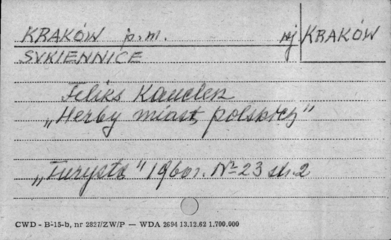 KRAKÓW p.m. wj KRAKÓW
SUKIENNICE
Feliks Kanclerz
"Herby miast polskich"
"Turysta" 1960r. Nr 23 str. 2
CWD - B-15-b, nr 2827/ZW/P — WDA 2694 13.12.62 1.700.000